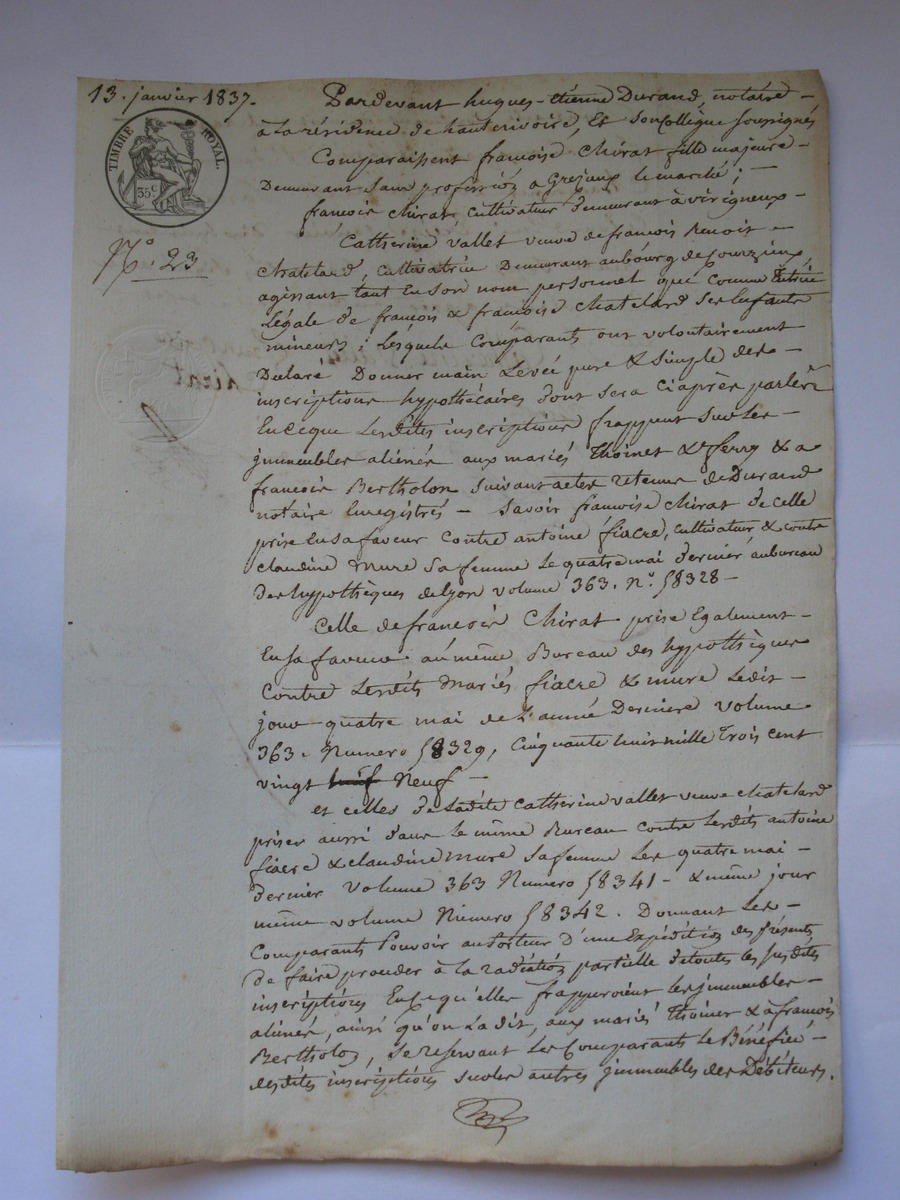 13. janvier 1837.
TIMBRE ROYAL.
35 c
N.° 23
Pardevant hugues-étienne Durand, notaire
à la résidence de hauterivoire, et son collègue soussignés
Comparaissent françoise Chirat fille majeure
Demeurant sans profession a Grezieux le marché ;
françois Chirat, cultivateur demeurant à virigneux
Catherine vallet veuve de françois Benoit
chatelard, cultivatrice Demeurant au bourg de Courzieu,
agissant tant En son nom personnel que comme tutrice
Légale de françois & françoise Chatelard ses Enfants
mineurs ; Lesquels Comparants ont volontairement
Déclaré Donner main Levée pure & simple des
inscriptions hypothécaires dont sera Ciaprès parlé
En ceque Lesdites inscriptions frappent sur les
immeubles aliénés aux mariés Thoinet & ferry & a
françois Bertholon suivant actes retenus de Durand
notaire Enregistrés - Savoir françoise Chirat de celle
prise En sa faveur contre antoine fiacre, cultivateur & contre
claudine mure sa femme Le quatre mai dernier au bureau
Des hypothèques de lyon volume 363. N.° 58328 -
Celle de françois Chirat prise Egalement
En sa faveur au même Bureau des hypothèques
Contre Lesdits Mariés fiacre & mure Ledit
jour quatre mai de L'année Dernière volume
363. Numero 58329, Cinquante huit mille Trois cent
vingt huit Neuf -
et celles de Ladite Catherine vallet veuve chatelard
prises aussi dans le même Bureau contre Lesdits antoine
fiacre & claudine mure sa femme Les quatre mai
dernier volume 363 Numero 58341 - & même jour
même volume Numero 58342. Donnant Les
Comparants Pouvoir au Porteur D'une Expédition des présentes
de faire procéder à la radiation partielle de toutes les susdites
inscriptions En ce qu'elles frapperoient les immeubles
aliénés, ainsi qu'on L'a dit, aux mariés Thoinet & à françois
Bertholon, se reservant Les Comparants le Bénéfice
desdites inscriptions sur les autres immeubles des Débiteurs.